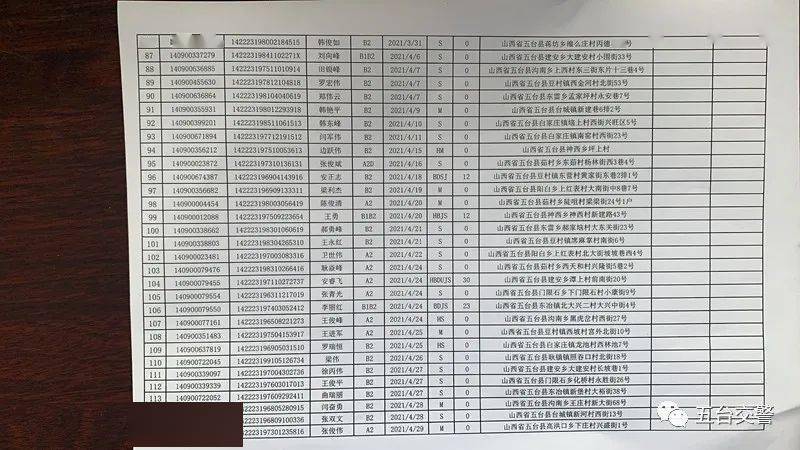 142223198002184515 韩俊如 B2 2021/3/31 S 0
87 140900337279 14222319841102271X 刘向峰 B1B2 2021/4/6 S 0 山西省五台县建安乡大建安村小围街33号
88 140900636885 142223197511010914 田银峰 B2 2021/4/7 S 0 山西省五台县沟南乡上西村东三街东片十三巷4号
89 140900455630 142223197812104818 罗宏伟 B2 2021/4/7 S 0 山西省五台县豆村镇西金河村北街53号
90 140900636864 142223198104040619 郑伟云 B2 2021/4/7 S 0 山西省五台县东雷乡孟家坪村永安巷7号
91 140900355931 142223198012293918 韩艳平 B2 2021/4/9 M 0 山西省五台县台城镇新建巷6排2号
92 140900399201 142223198511061513 韩东峰 B2 2021/4/10 S 0 山西省五台县白家庄镇垴上村西街兴旺区5号
93 140900671894 142223197712191512 闫军伟 B2 2021/4/11 S 0 山西省五台县白家庄镇南窑村西街23号
94 140900356212 142223197510053613 边跃伟 B2 2021/4/15 HM 0 山西省五台县神西乡坪上村
95 140900023872 142223197310136131 张俊斌 A2D 2021/4/16 S 0 山西省五台县茹村乡东茹村杨林街西3巷4号
96 140900674387 142223196904143916 安正志 B2 2021/4/18 BDSJ 12 山西省五台县豆村镇东营村黄家街东巷2排1号
97 140900356682 142223196909133311 梁利杰 B2 2021/4/19 M 0 山西省五台县阳白乡上红表村大南街中8巷7号
98 140900004454 142223198003056419 陈俊清 A2 2021/4/20 M 0 山西省五台县茹村乡陡咀村梁梁街24号1户
99 140900012088 142223197509223654 王勇 B1B2 2021/4/20 HBJS 12 山西省五台县神西乡神西村新建路43号
100 140900338662 142223198301060619 郝勇峰 B2 2021/4/21 S 0 山西省五台县东雷乡郝家垴村大东关街23号
101 140900338803 142223198304265310 王永红 B2 2021/4/21 S 0 山西省五台县豆村镇席麻掌村南街6号
102 140900023481 142223197003083316 卫世伟 A2 2021/4/22 S 0 山西省五台县阳白乡上红表村北大街坡坡巷4号
103 140900079476 142223198310266416 耿焱峰 A2 2021/4/24 S 0 山西省五台县茹村乡西天和村兴隆街5巷2号
104 140900079555 142223197110272737 安睿飞 A2 2021/4/24 HBDUJS 30 山西省五台县建安乡潭上村前南街20号
105 140900079554 142223196311217019 张青光 A2 2021/4/24 S 0 山西省五台县门限石乡下门限石村小康街9号
106 140900079550 142223197403052412 李丽红 B1B2 2021/4/24 BDJS 23 山西省五台县东冶镇北大兴二村大兴中街4号
107 140900077161 142223196508221273 王俊峰 A2 2021/4/24 HS 0 山西省五台县沟南乡黑虎岔村西街27号
108 140900351483 142223197504153917 王进军 A2 2021/4/25 M 0 山西省五台县豆村镇西坡村宫外北街10号
109 140900637819 142223196905031510 罗瑞恒 B2 2021/4/25 HS 0 山西省五台县白家庄镇龙池村西林池7号
110 140900722045 142223199105126734 梁伟 B2 2021/4/26 S 0 山西省五台县耿镇镇照吞口村北街18号
111 140900339097 142223197004302736 徐丙伟 B2 2021/4/27 S 0 山西省五台县建安乡大建安村长坡巷1号
112 140900339339 142223197603017013 王俊平 B2 2021/4/27 S 0 山西省五台县门限石乡化桥村永胜街26号
113 140900722052 142223197609292411 曲瑞丽 B2 2021/4/27 S 0 山西省五台县东冶镇新堡村大裕街38号
142223196805280915 闫奋勇 B2 2021/4/28 M 0 山西省五台县沟南乡王庄村新大街68号
142223196809100336 张双文 B2 2021/4/28 S 0 山西省五台县台城镇新河村西街13号
142223197301235816 张俊伟 A2 2021/4/29 M 0 山西省五台县高洪口乡下庄村兴盛街1号
五台交警